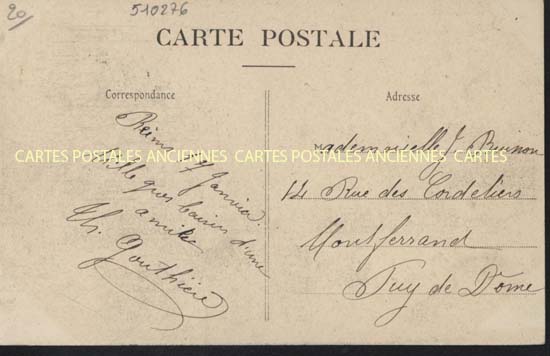 20/
510276
CARTE POSTALE
Correspondance
Reims 7 Janvier.
Mille gros baisers d'une
amie
Th. Gouthière
Adresse
Mademoiselle J. Buisson
14 Rue des Cordeliers
Montferrand
Puy de Dôme
CARTES POSTALES ANCIENNES CARTES POSTALES ANCIENNES CARTES